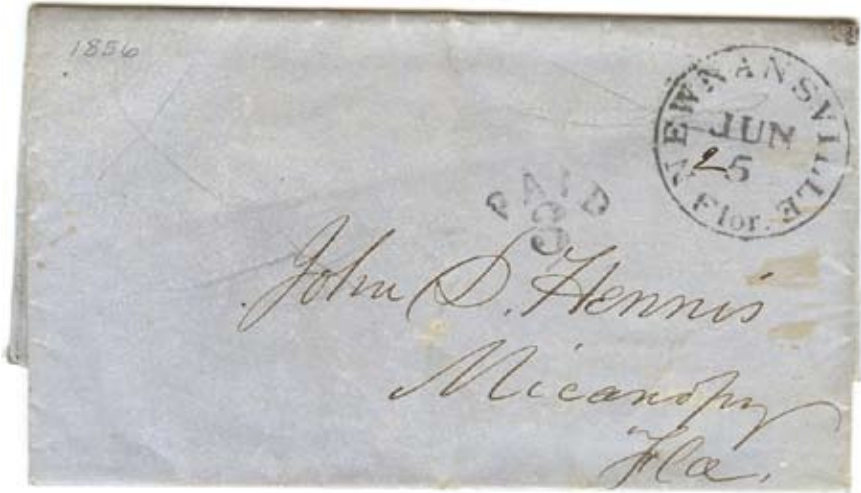 1856
NEWNANSVILLE
JUN
25
Flor.
PAID
3
John D. Hennis
Micanopy
Fla.